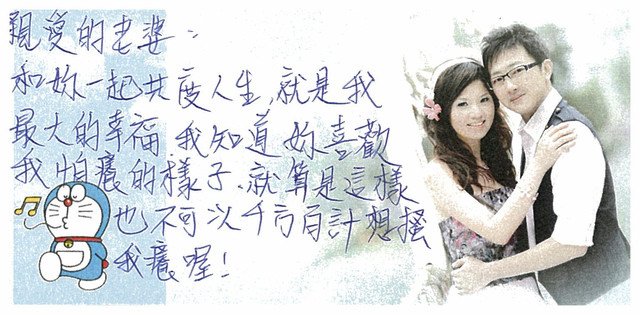 親愛的老婆：
和妳一起共度人生,就是我
最大的幸福 我知道 妳喜歡
我怕癢的樣子.就算是這樣
也不可以千方百計想搔
我癢喔!